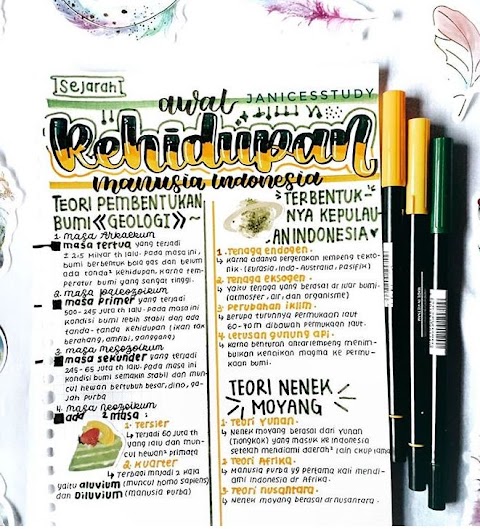 [Sejarah]
awal
JANICESSTUDY
Kehidupan
manusia Indonesia
TEORI PEMBENTUKAN
BUMI «GEOLOGI» ~
1. masa Arkaekum
masa tertua yang terjadi
± 2,5 milyar th lalu. Pada masa ini,
bumi berbentuk bola gas dan belum
ada tanda² kehidupan. karna tem-
peratur bumi yang sangat tinggi.
2. masa paleozoikum
masa primer yang terjadi
500-245 juta th lalu. Pada masa ini
kondisi bumi lebih stabil dan ada
tanda-tanda kehidupan (ikan tak
berahang, amfibi, ganggang)
3. masa mesozoikum
masa sekunder yang terjadi
245-65 juta th lalu. Pada masa ini
kondisi bumi semakin stabil dan mun-
cul hewan bertubuh besar, dino, ga-
jah purba
4. masa Neozoikum
ada 2 masa :
1. Tersier
↳ Terjadi 60 juta th
yang lalu dan mun-
cul hewan² primata
2. Kuarter
↳ Terbagi menjadi 2 kala
yaitu aluvium (muncul homo sapiens)
dan Diluvium (manusia purba)
TERBENTUK-
NYA KEPULAU-
AN INDONESIA
1. Tenaga endogen.
↳ karna adanya pergerakan lempeng tekto-
nik. (Eurasia, Indo-Australia, Pasifik)
2. Tenaga eksogen.
↳ Yaitu tenaga yang berasal dr luar bumi
(atmosfer, air, dan organisme)
3. Perubahan iklim.
↳ Berupa turunnya permukaan laut
60-70 m dibawah permukaan laut.
4. Letusan gunung api.
↳ karna benturan antarlempeng menim-
bulkan kenaikan magma ke permu-
kaan bumi.
TEORI NENEK
MOYANG
1. Teori Yunan.
↳ Nenek moyang berasal dari Yunan
(Tiongkok) yang masuk ke Indonesia
setelah mendiami daerah² lain ckup lama
2. Teori Afrika.
↳ Manusia purba yg pertama kali mendi-
ami Indonesia dr Afrika.
3. Teori nusantara.
↳ Nenek moyang berasal dr nusantara.